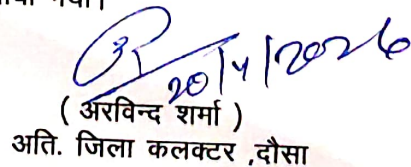 20/4/2026
( अरविन्द शर्मा )
अति. जिला कलक्टर ,दौसा